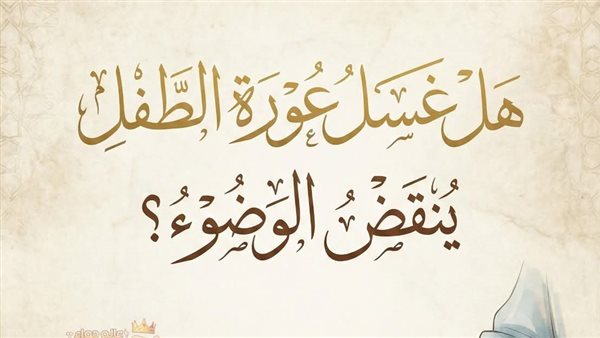 هَلْ غَسَلُ عُوْرَةِ الطَّفْلِ
يُنقَضُ الوَضُوْءُ؟